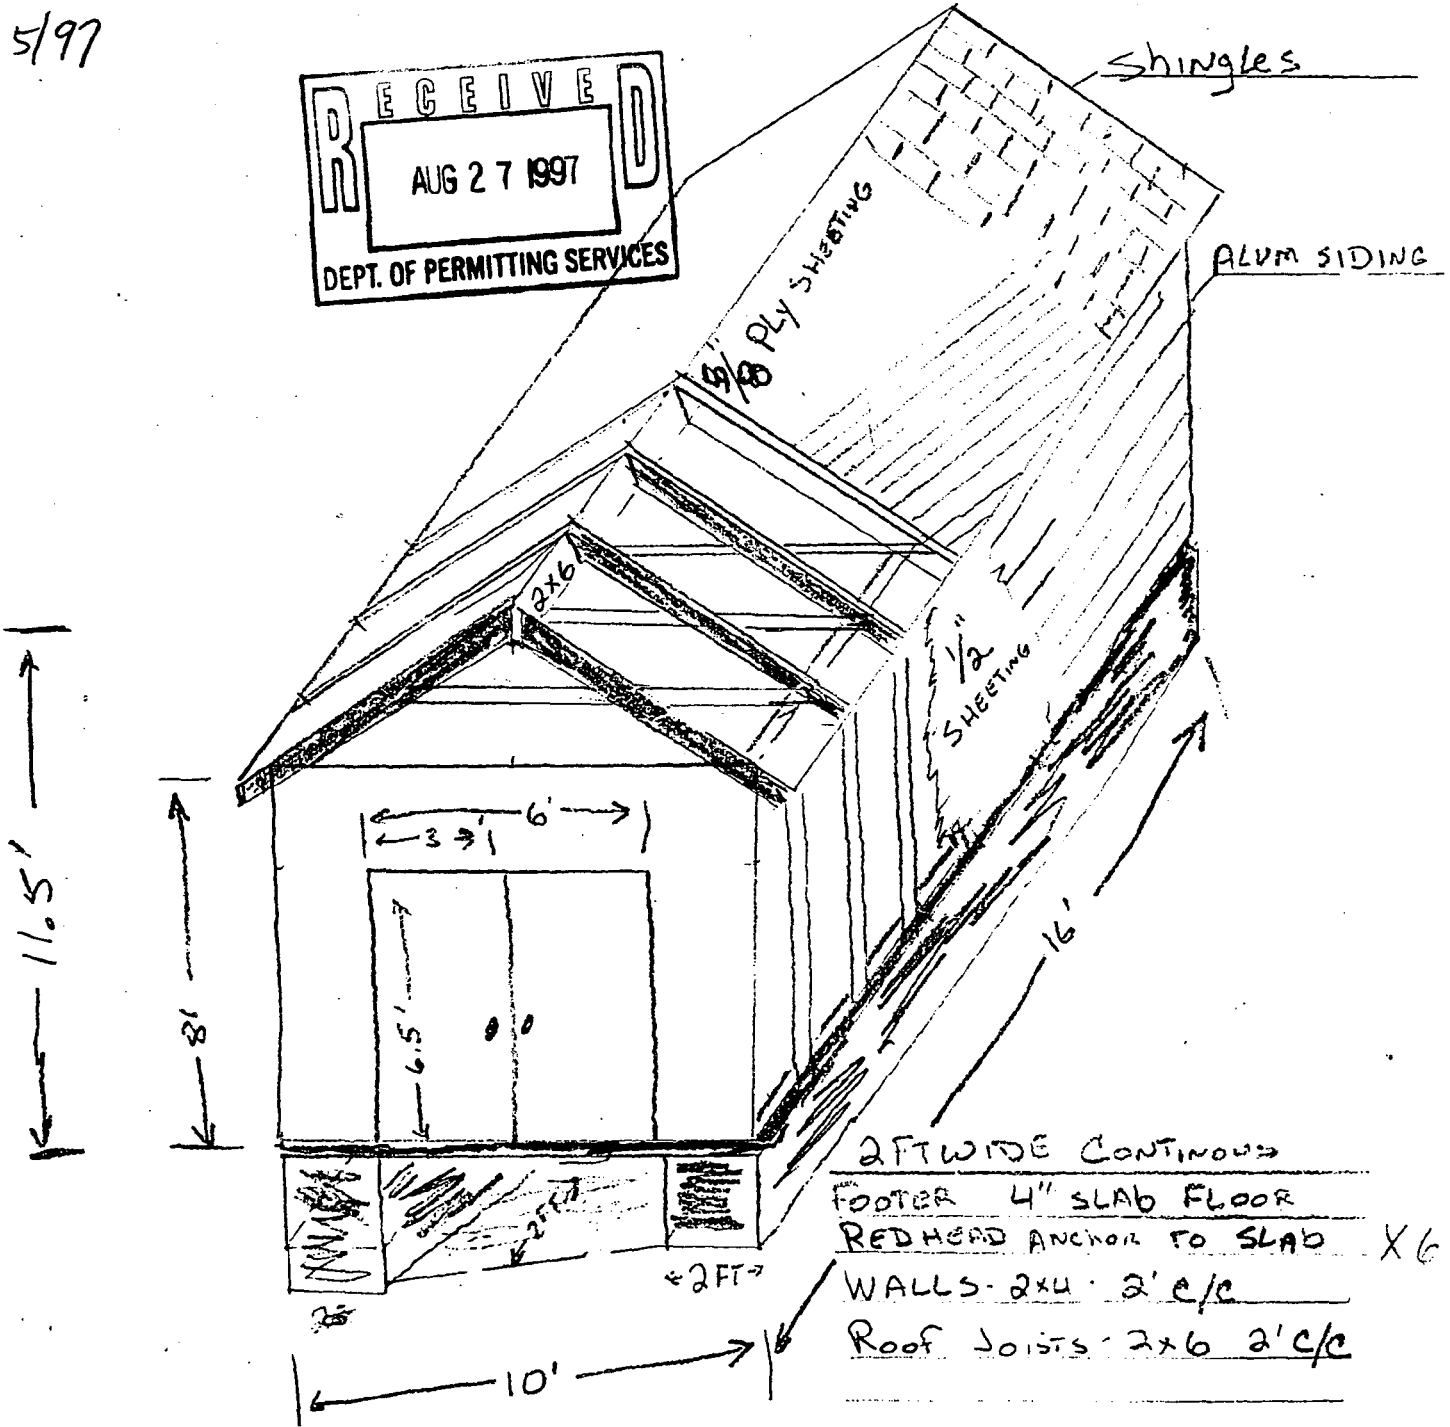 5/97
RECEIVED
AUG 27 1997
DEPT. OF PERMITTING SERVICES
Shingles
ALUM SIDING
PLY SHEETING
2x6
1/2"
SHEETING
11.5'
8'
6'
3'
6.5'
16'
2FT
←2FT→
10'
2FT WIDE CONTINOUS
FOOTER 4" SLAB FLOOR
REDHEAD ANCHOR TO SLAB X6
WALLS - 2x4 - 2' C/C
Roof Joists - 2x6 2' C/C